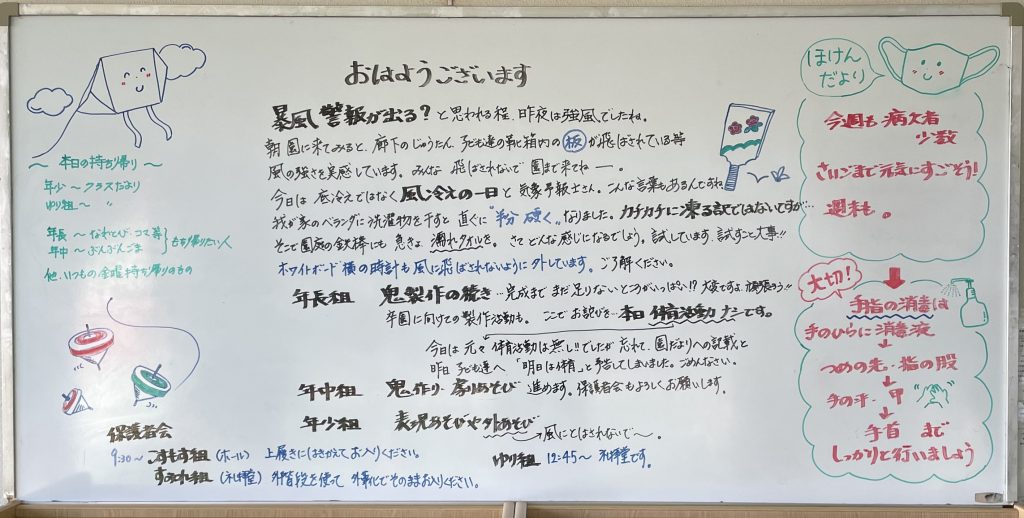 おはようございます
暴風警報が出る？と思われる程、昨夜は強風でしたね。
朝園に来てみると、廊下のじゅうたん、子ども達の靴箱内の板が飛ばされている等
風の強さを実感しています。みんな 飛ばされないで園まで来てねー。
今日は 底冷えではなく風冷えの一日と気象予報士さん。こんな言葉もあるんですね
我が家のベランダに洗濯物を干すと直ぐに"半分硬く"なりました。カチカチに凍る訳ではないですが…
そこで園庭の鉄棒にも 急きょ 濡れタオルを。さてどんな感じになるでしょう。試しています。試すこと大事!!
ホワイトボード横の時計も風に飛ばされないように外しています。ご了解ください。
年長組 鬼製作の続き …完成までまだ足りないところがいっぱい!? 大変ですよ 頑張ろう!!
卒園に向けての製作活動も。ここでお詫びを…本日 体育活動ナシです。
今日は元々"体育活動は無し!!"でしたが 忘れて、園だよりへの記載と
昨日子ども達へ「明日は体育」と予告してしまいました。ごめんなさい。
年中組 鬼作り・家りあそび 進めます。保護者会もよろしくお願いします。
年少組 表現あそびや外あそび
→風にとばされないで〜。
〜 本日の持ち帰り 〜
年少 〜 クラスだより
ゆり組 〜 〃
年長 〜 なわとび・コマ等
年中 〜 ぶんぶんごま
}お持ち帰りたい人
他、いつもの金曜持ち帰りのもの
保護者会
9:30〜 こすもす組 (ホール) 上履きにはきかえてお入りください。
すみれ組 (礼拝堂) 外階段を使って 外靴でそのままお入りください。
ゆり組 12:45〜 礼拝堂です。
ほけん
だより
今週も 病欠者
少数
さいごまで元気にすごそう!
週末も。
大切!
手指の消毒は
手のひらに消毒液
つめの先・指の股
手の平・甲
手首 まで
しっかりと行いましょう